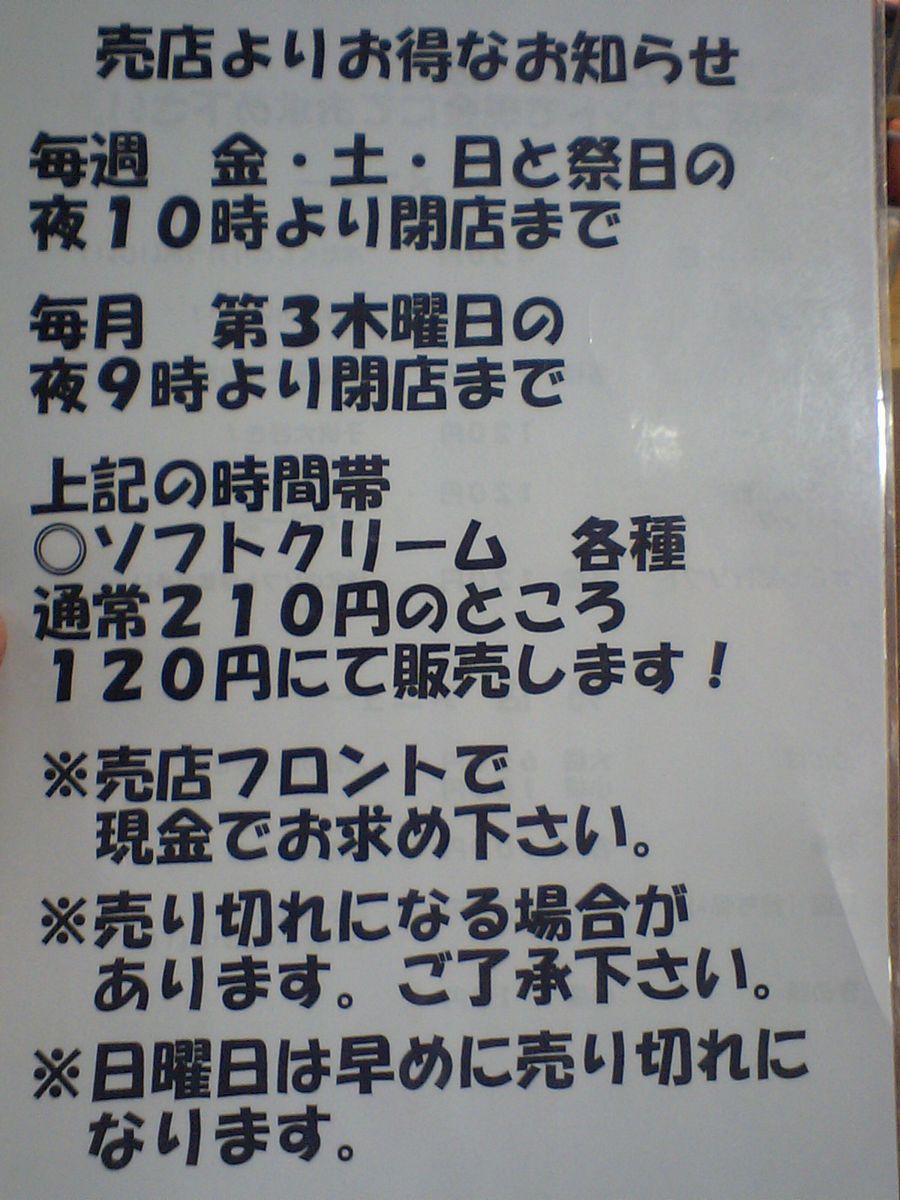 売店よりお得なお知らせ
毎週　金・土・日と祭日の
夜１０時より閉店まで
毎月　第３木曜日の
夜９時より閉店まで
上記の時間帯
◎ソフトクリーム　各種
通常２１０円のところ
１２０円にて販売します！
※売店フロントで
現金でお求め下さい。
※売り切れになる場合が
あります。ご了承下さい。
※日曜日は早めに売り切れに
なります。